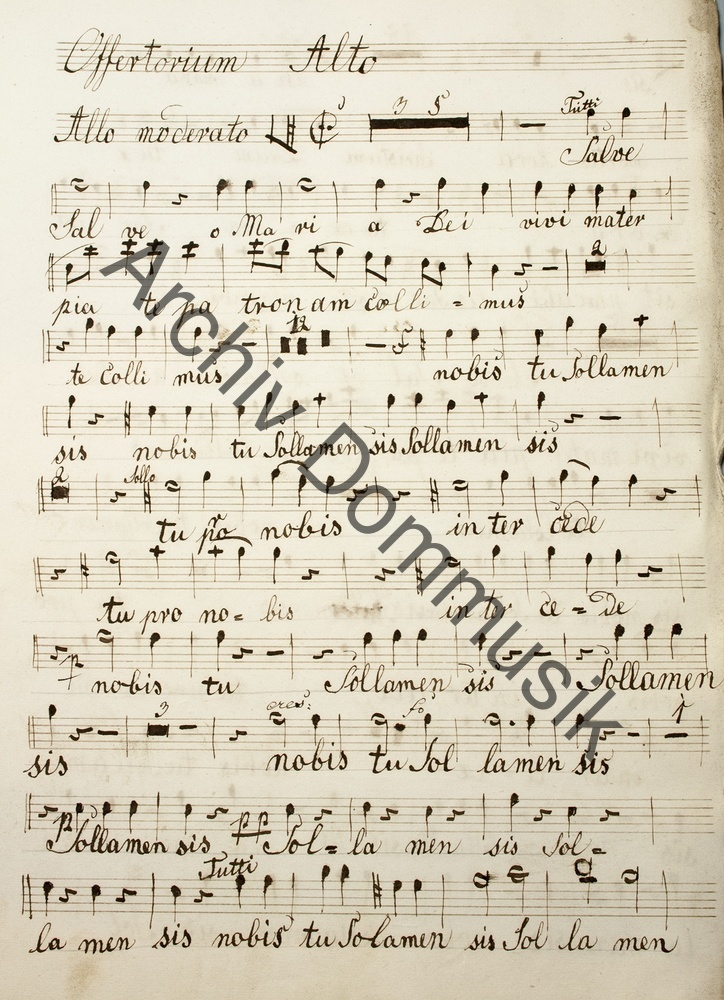 Offertorium Alto
Allo moderato 3 5 Tutti
Salve
Sal ve o Ma ri a Dei vivi mater
2
pia te pa tronam colli = mus
12
te colli mus nobis tu Sollamen
sis nobis tu Sollamen sis Sollamen sis
2 Sollo
tu pro nobis inter cede
tu pro no = bis in ter ce = de
p nobis tu Sollamen sis Sollamen
3 cres: fo 1
sis nobis tu Sol lamen sis
p Sollamen sis pp Sol = la men sis Sol =
Tutti
la men sis nobis tu Solamen sis Sol la men
Archiv Dommusik